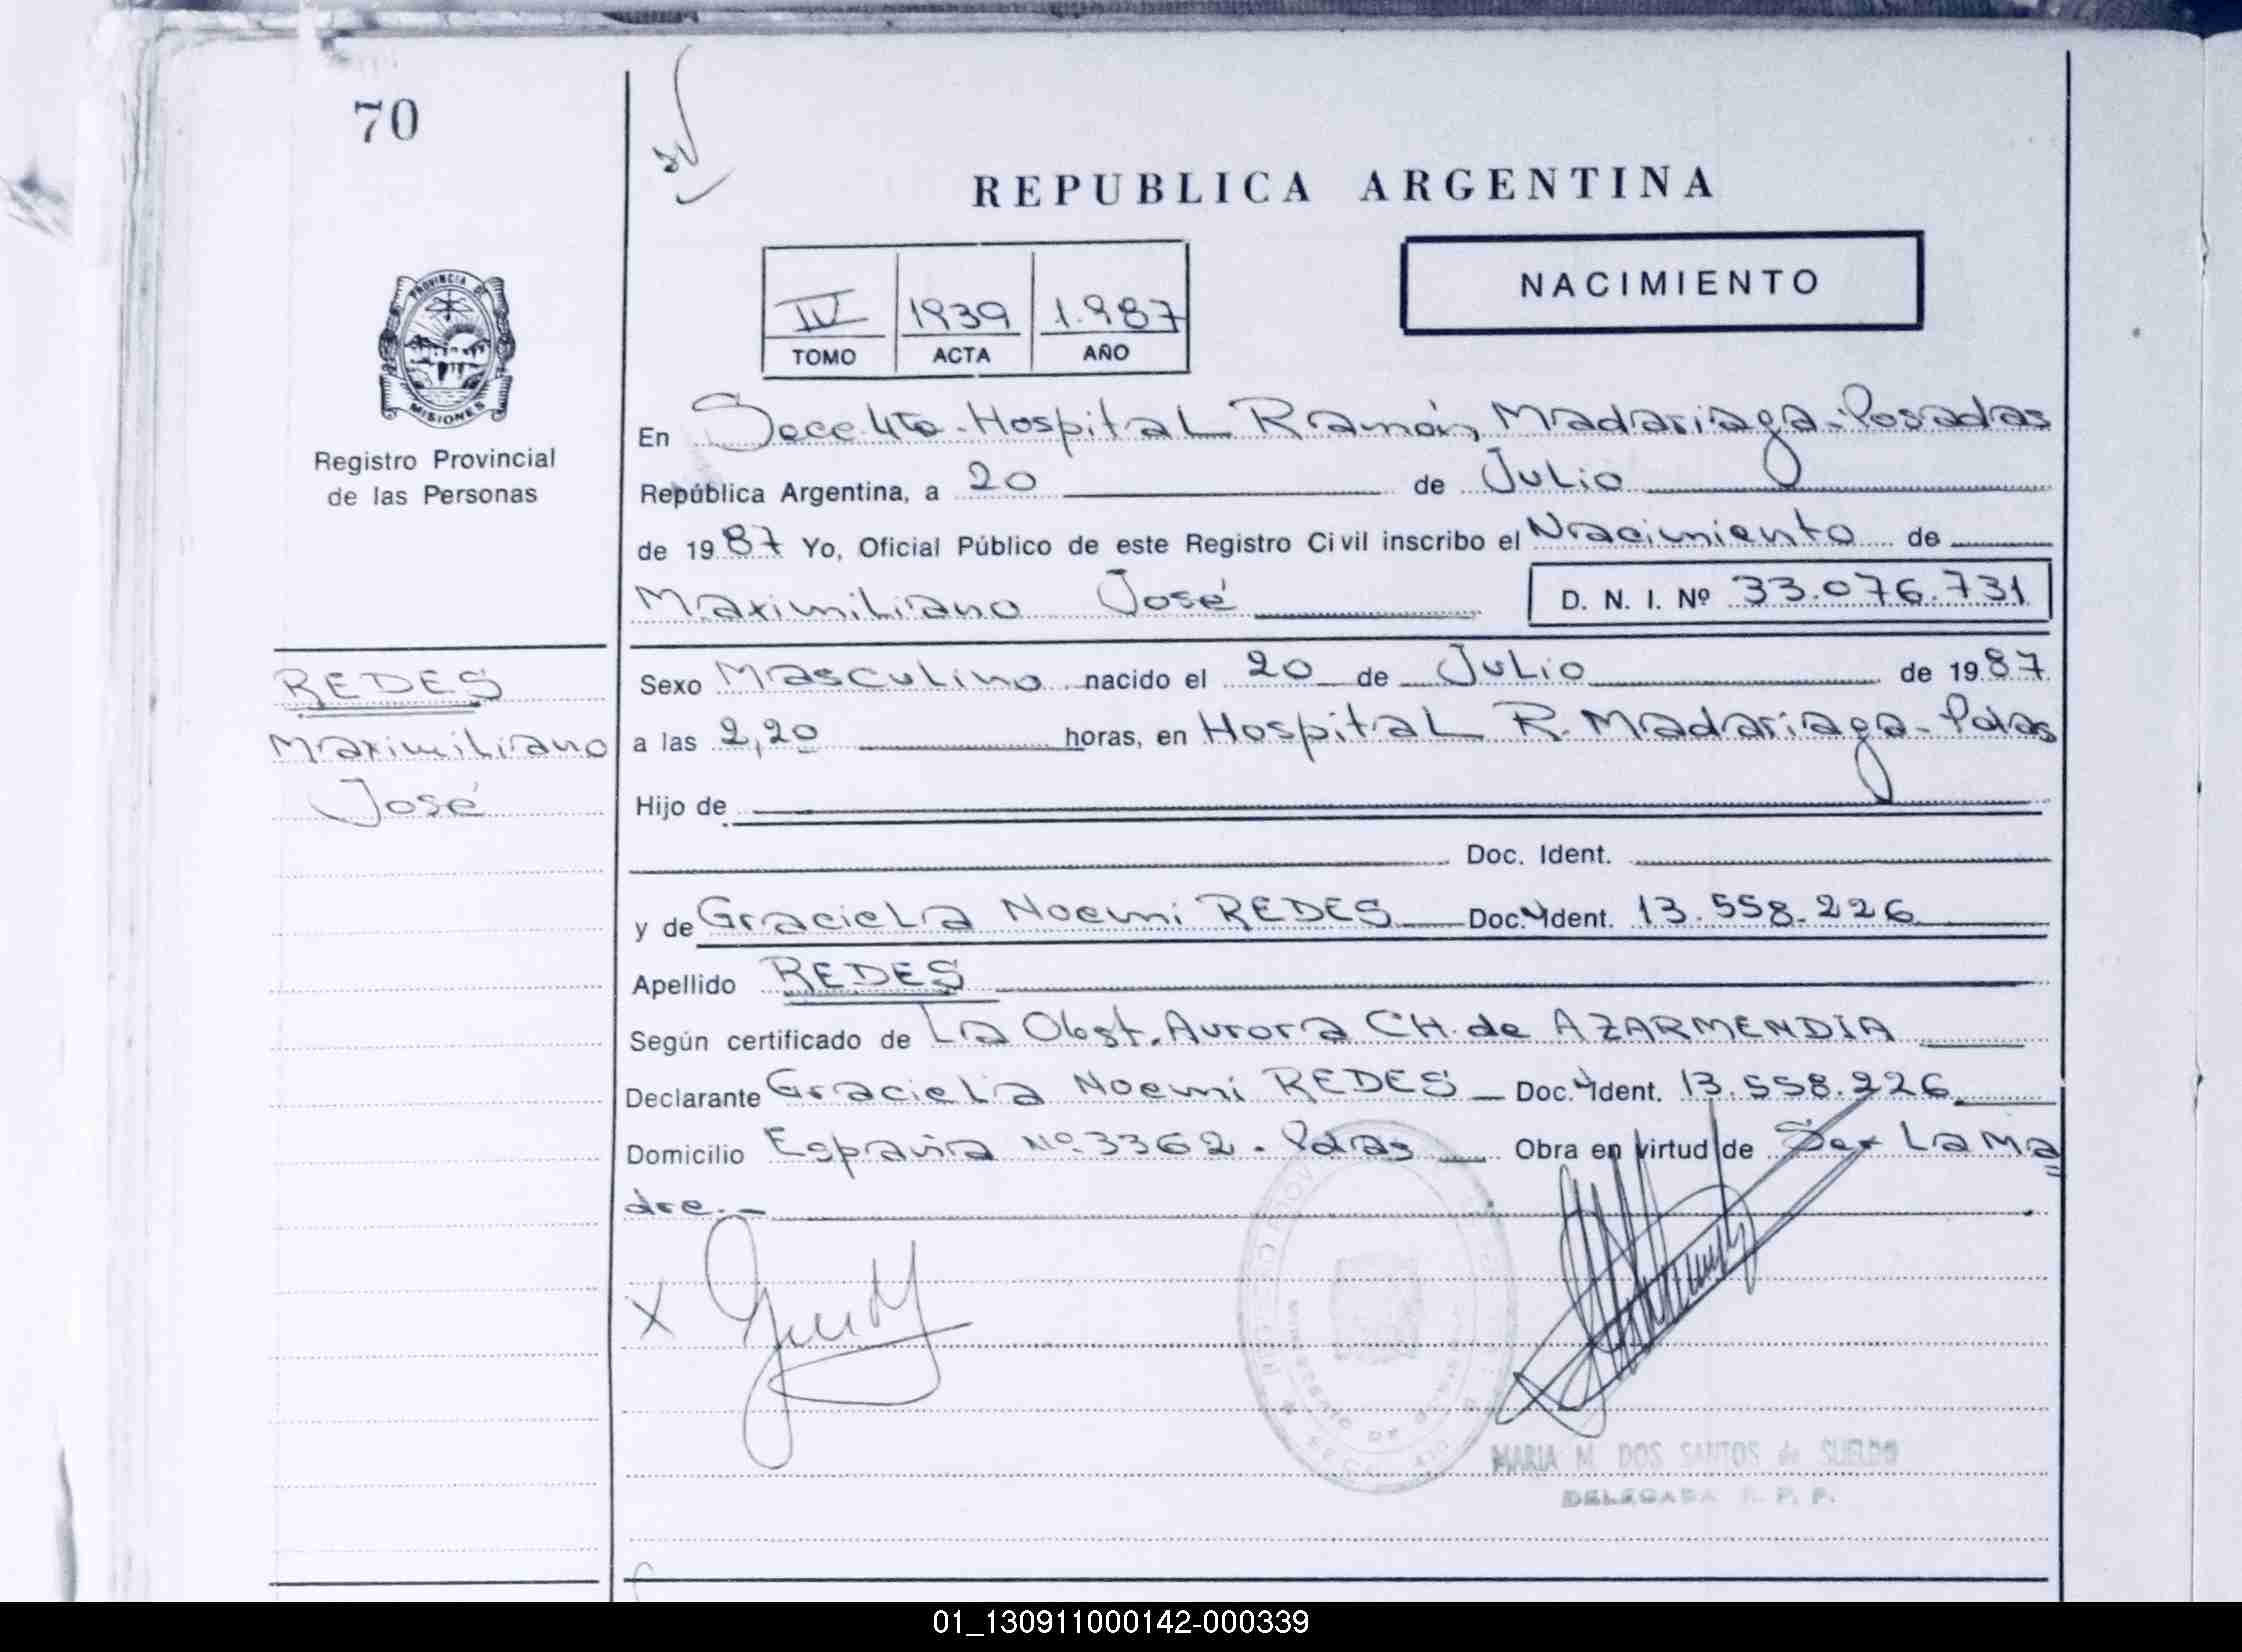 70
REPUBLICA ARGENTINA
IV 1939 1.987
TOMO ACTA AÑO
NACIMIENTO
PROVINCIA DE
MISIONES
Registro Provincial
de las Personas
En Secc 4ta. Hospital Ramón Madariaga - Posadas
República Argentina, a 20 de Julio
de 1987 Yo, Oficial Público de este Registro Civil inscribo el Nacimiento de
Maximiliano José D. N. I. Nº 33.076.731
REDES
Maximiliano
José
Sexo Masculino nacido el 20 de Julio de 1987
a las 2,20 horas, en Hospital R. Madariaga - Pdas
Hijo de
Doc. Ident.
y de Graciela Noemi REDES Doc. Ident. 13.558.226
Apellido REDES
Según certificado de La Obst. Aurora CH. de AZARMENDIA
Declarante Graciela Noemi REDES Doc. Ident. 13.558.226
Domicilio España Nº 3362. Pdas Obra en virtud de Ser La Ma
dre.-
X
MARIA M. DOS SANTOS de SUELDO
DELEGADA R. P. P.
01_130911000142-000339